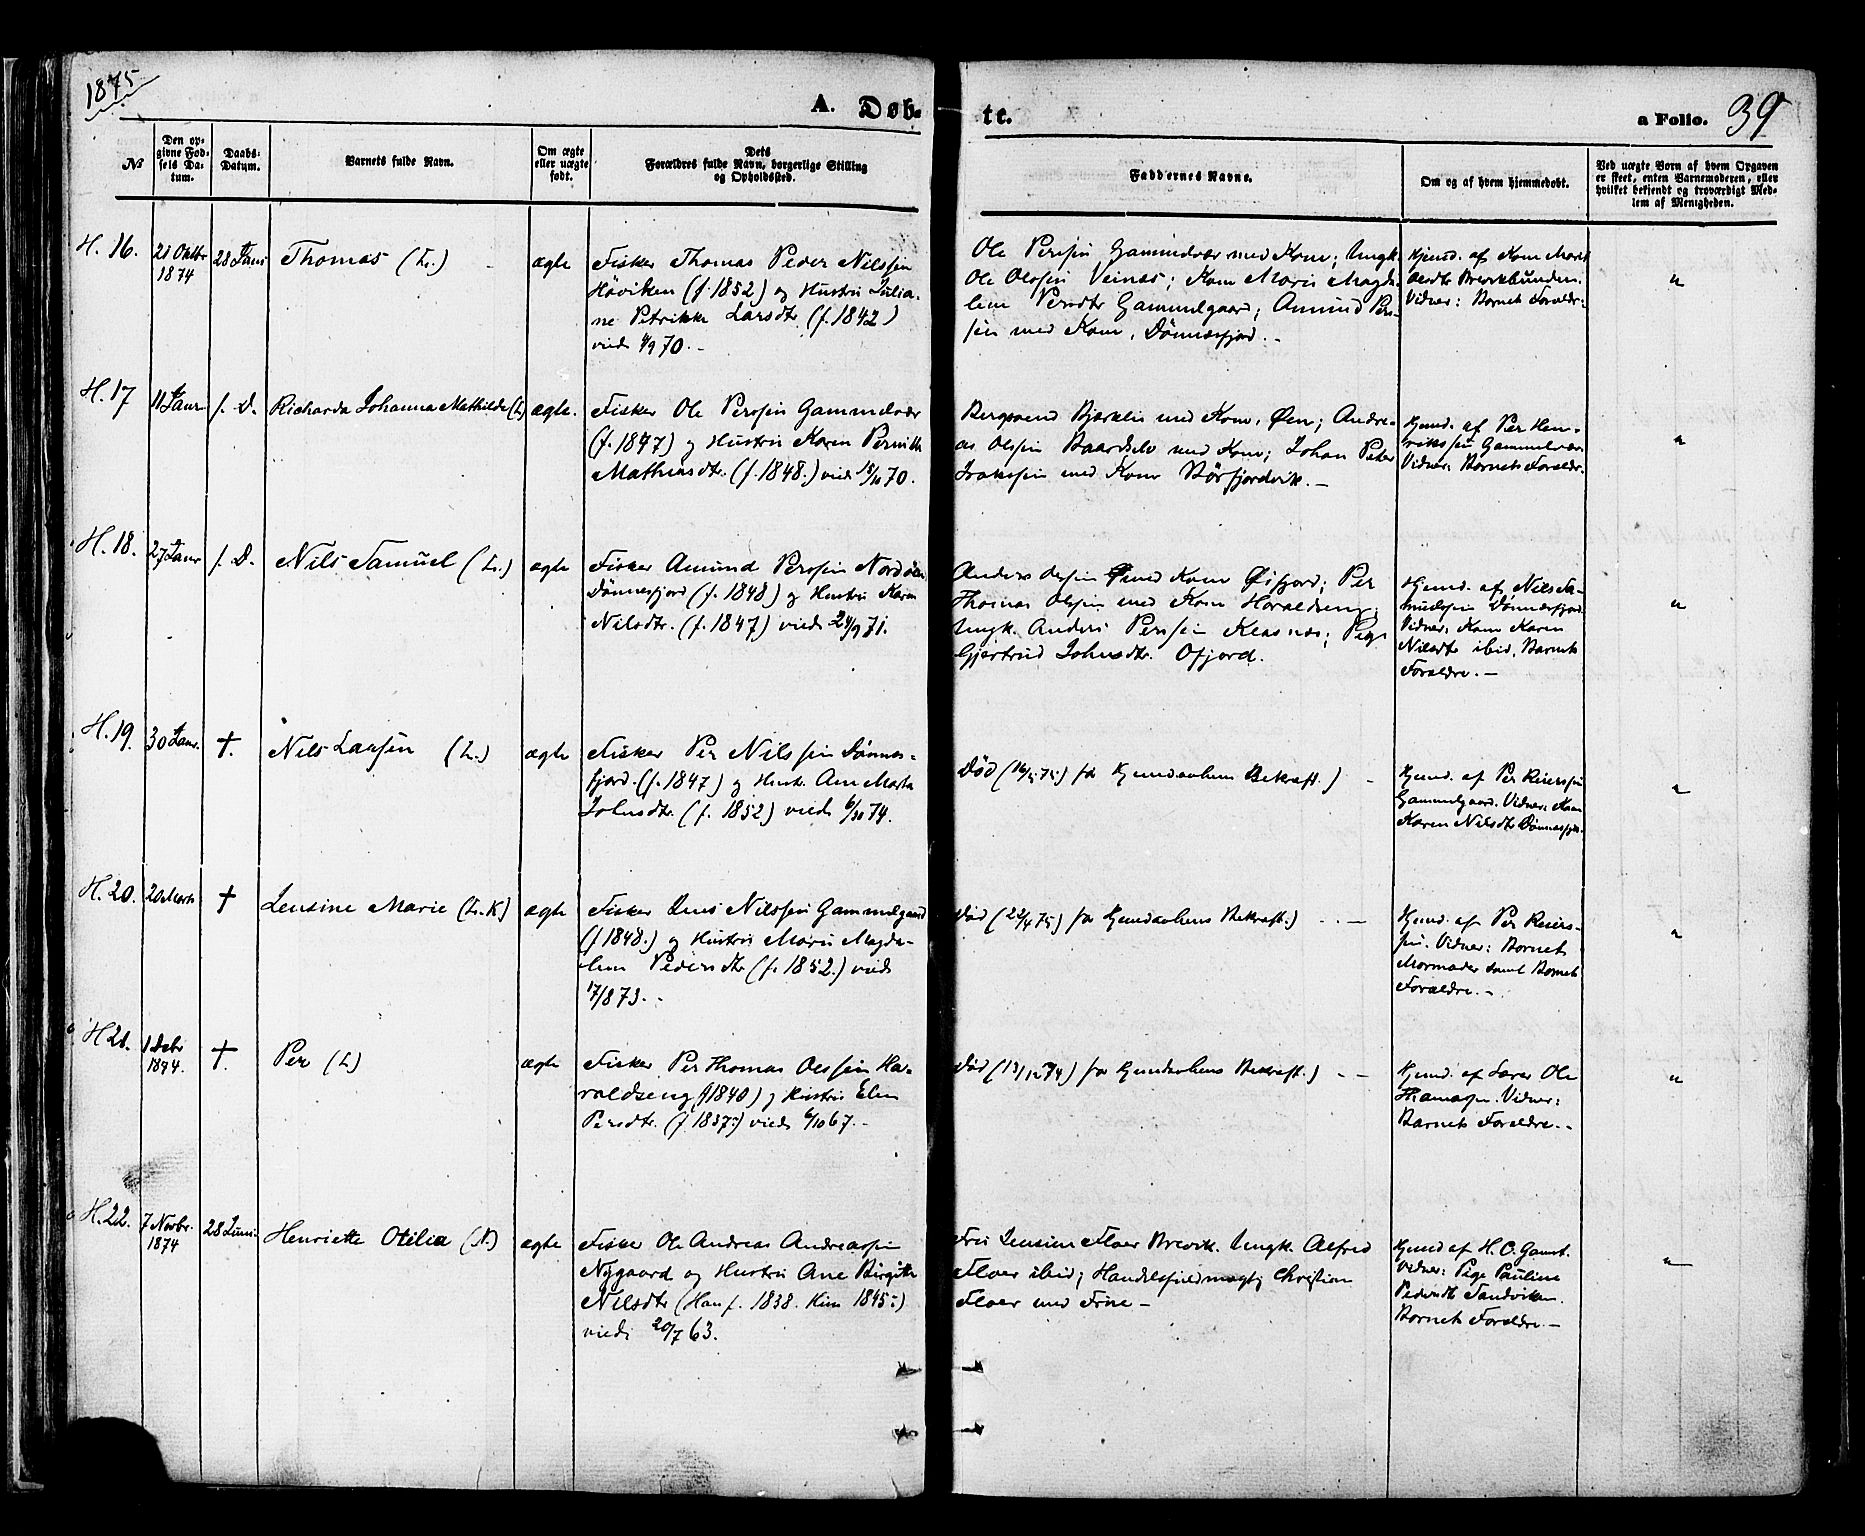 1875
A. Døb-
te.
a Folio. 39
№
Den op-
givne Fød-
sels Da-
tum.
Daabs-
Datum.
Barnets fulde Navn.
Om ægte
eller uægte
født.
Dets
Forældres fulde Navn, borgerlige Stilling
og Opholdssted.
Faddernes Navne.
Om og af hvem hjemmedøbt.
Ved uægte Børn af hvem Opgaven
er skeet, enten Barnemoderen, eller
hvilket bekjendt og troværdigt Med-
lem af Menigheden.
H. 16.
21 Octbr
1874
28 Juni
Thomas (L.)
ægte
Fisker Thomas Peder Nilssen
Haviken (f. 1852) og Hustru Julia-
ne Petrikke Larsdtr. (f. 1842)
viede 4/9 70. -
Ole Perssen Gammelvær med Kone; Ungk.
Ole Olssen Veinæs; Kone Maris Magda-
lene Persdtr Gammelgaard; Amund Pers-
sen med Kone, Dønnesfjord. -
Hjemd. af Kone Marit
Vidner: Barnets Forældre
"
H. 17
11 Janr
s. D.
Richarda Johanna Mathilde (L)
ægte.
Fisker Ole Perssen Gammelvær
(f. 1847) og Hustru Karen Pernille
Mathiasdtr. (f. 1848.) viede 18/10 70.
Bergsvend Bjørklie med Kone, Øen; Andre-
as Olssen Baardselv med Kone; Johan Peter
Isakssen med Kone Børfjordvik. -
Hjemd. af Per Hen-
rikssen Gammelvær
Vidner: Barnets Forældr.
"
H. 18.
27 Janr
s. D.
Nils Samuel (L.)
ægte
Fisker Amund Perssen Nordøen
Dønnesfjord (f. 1848) og Hustru Karen
Nilsdtr. (f. 1847) viede 24/9 71.
Anders Olssen med Kone Øifjord; Per
Thomas Olssen med Kone Haraldseng;
Ungk. Anders Perssen Klasnæs; Pige
Gjertrud Johnsdtr. Ofjord.
Hjemd. af Nils Sa-
muelssen Dønnesfjord
Vidner: Kone Karen
Nilsdtr ibid. Barnets
Forældre. -
"
H. 19.
30 Janr.
†.
Nils Larssen (L.)
ægte
Fisker Per Nilssen Dønnes-
fjord. (f. 1847) og Hustr. Ane Marta
Johnsdtr. (f. 1852) viede 6/10 74.
Død (16/5 75) før Hjemdaabens Bekræft.) -
Hjemd. af Per Reierssen
Gammelgaard. Vidner: Kone
Karen Nilsdtr Dønnesfjor.
"
H. 20.
20 Marts
†
Lensine Marie (L.K.)
ægte
Fisker Lens Nilssen Gammelgaard
(f 1848.) og Hustru Maris Magda-
lene Pedersdtr (f. 1852.) viede
17/8 73. -
Død (22/4 75) før Hjemdaabens Bekræft.) -
Hjemd. af Per Reiers-
sen. Vidner: Barnets
Mormoder samt Barnets
Forældre. -
"
H 21.
1 Debr
1874.
†.
Per (L)
ægte
Fisker Per Thomas Olssen Ha-
raldseng (f 1840) og Hustru Elen
Persdtr. (f 1837:) viede 6/10 67. -
Død (13/12 74) før Hjemdaabens Bekræft.) - -
Hjemd. af Lærer Ole
Thomassen. Vidner:
Barnets Forældre. -
"
H. 22.
7 Novbr.
1874
28 Juni.
Henriette Otilia (N.)
ægte
Fisker Ole Andreas Andreassen
Nygaard og Hustru Ane Birgitte
Nilsdtr (Han f. 1838. Hun 1845:)
viede 20/7 63.
Frk Lensine Floer Brevik. Ungk. Alfred
Floer ibid; Handelsfuldmægtig Christian
Floer med Frue -
Hjemd af H. C. Gamst.
Vidner: Pige Pauline
Pedersdtr Sandviken.
Barnets Forældre. -
"